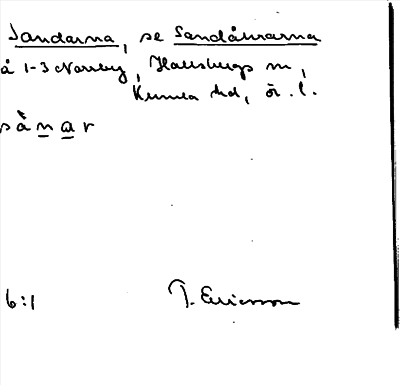 Sandarna, se Sandåkrarna
å 1-3 Norrby, Hallsbergs sn,
Kumla hd, ör. l.
sånar
6:1
T. Ericsson